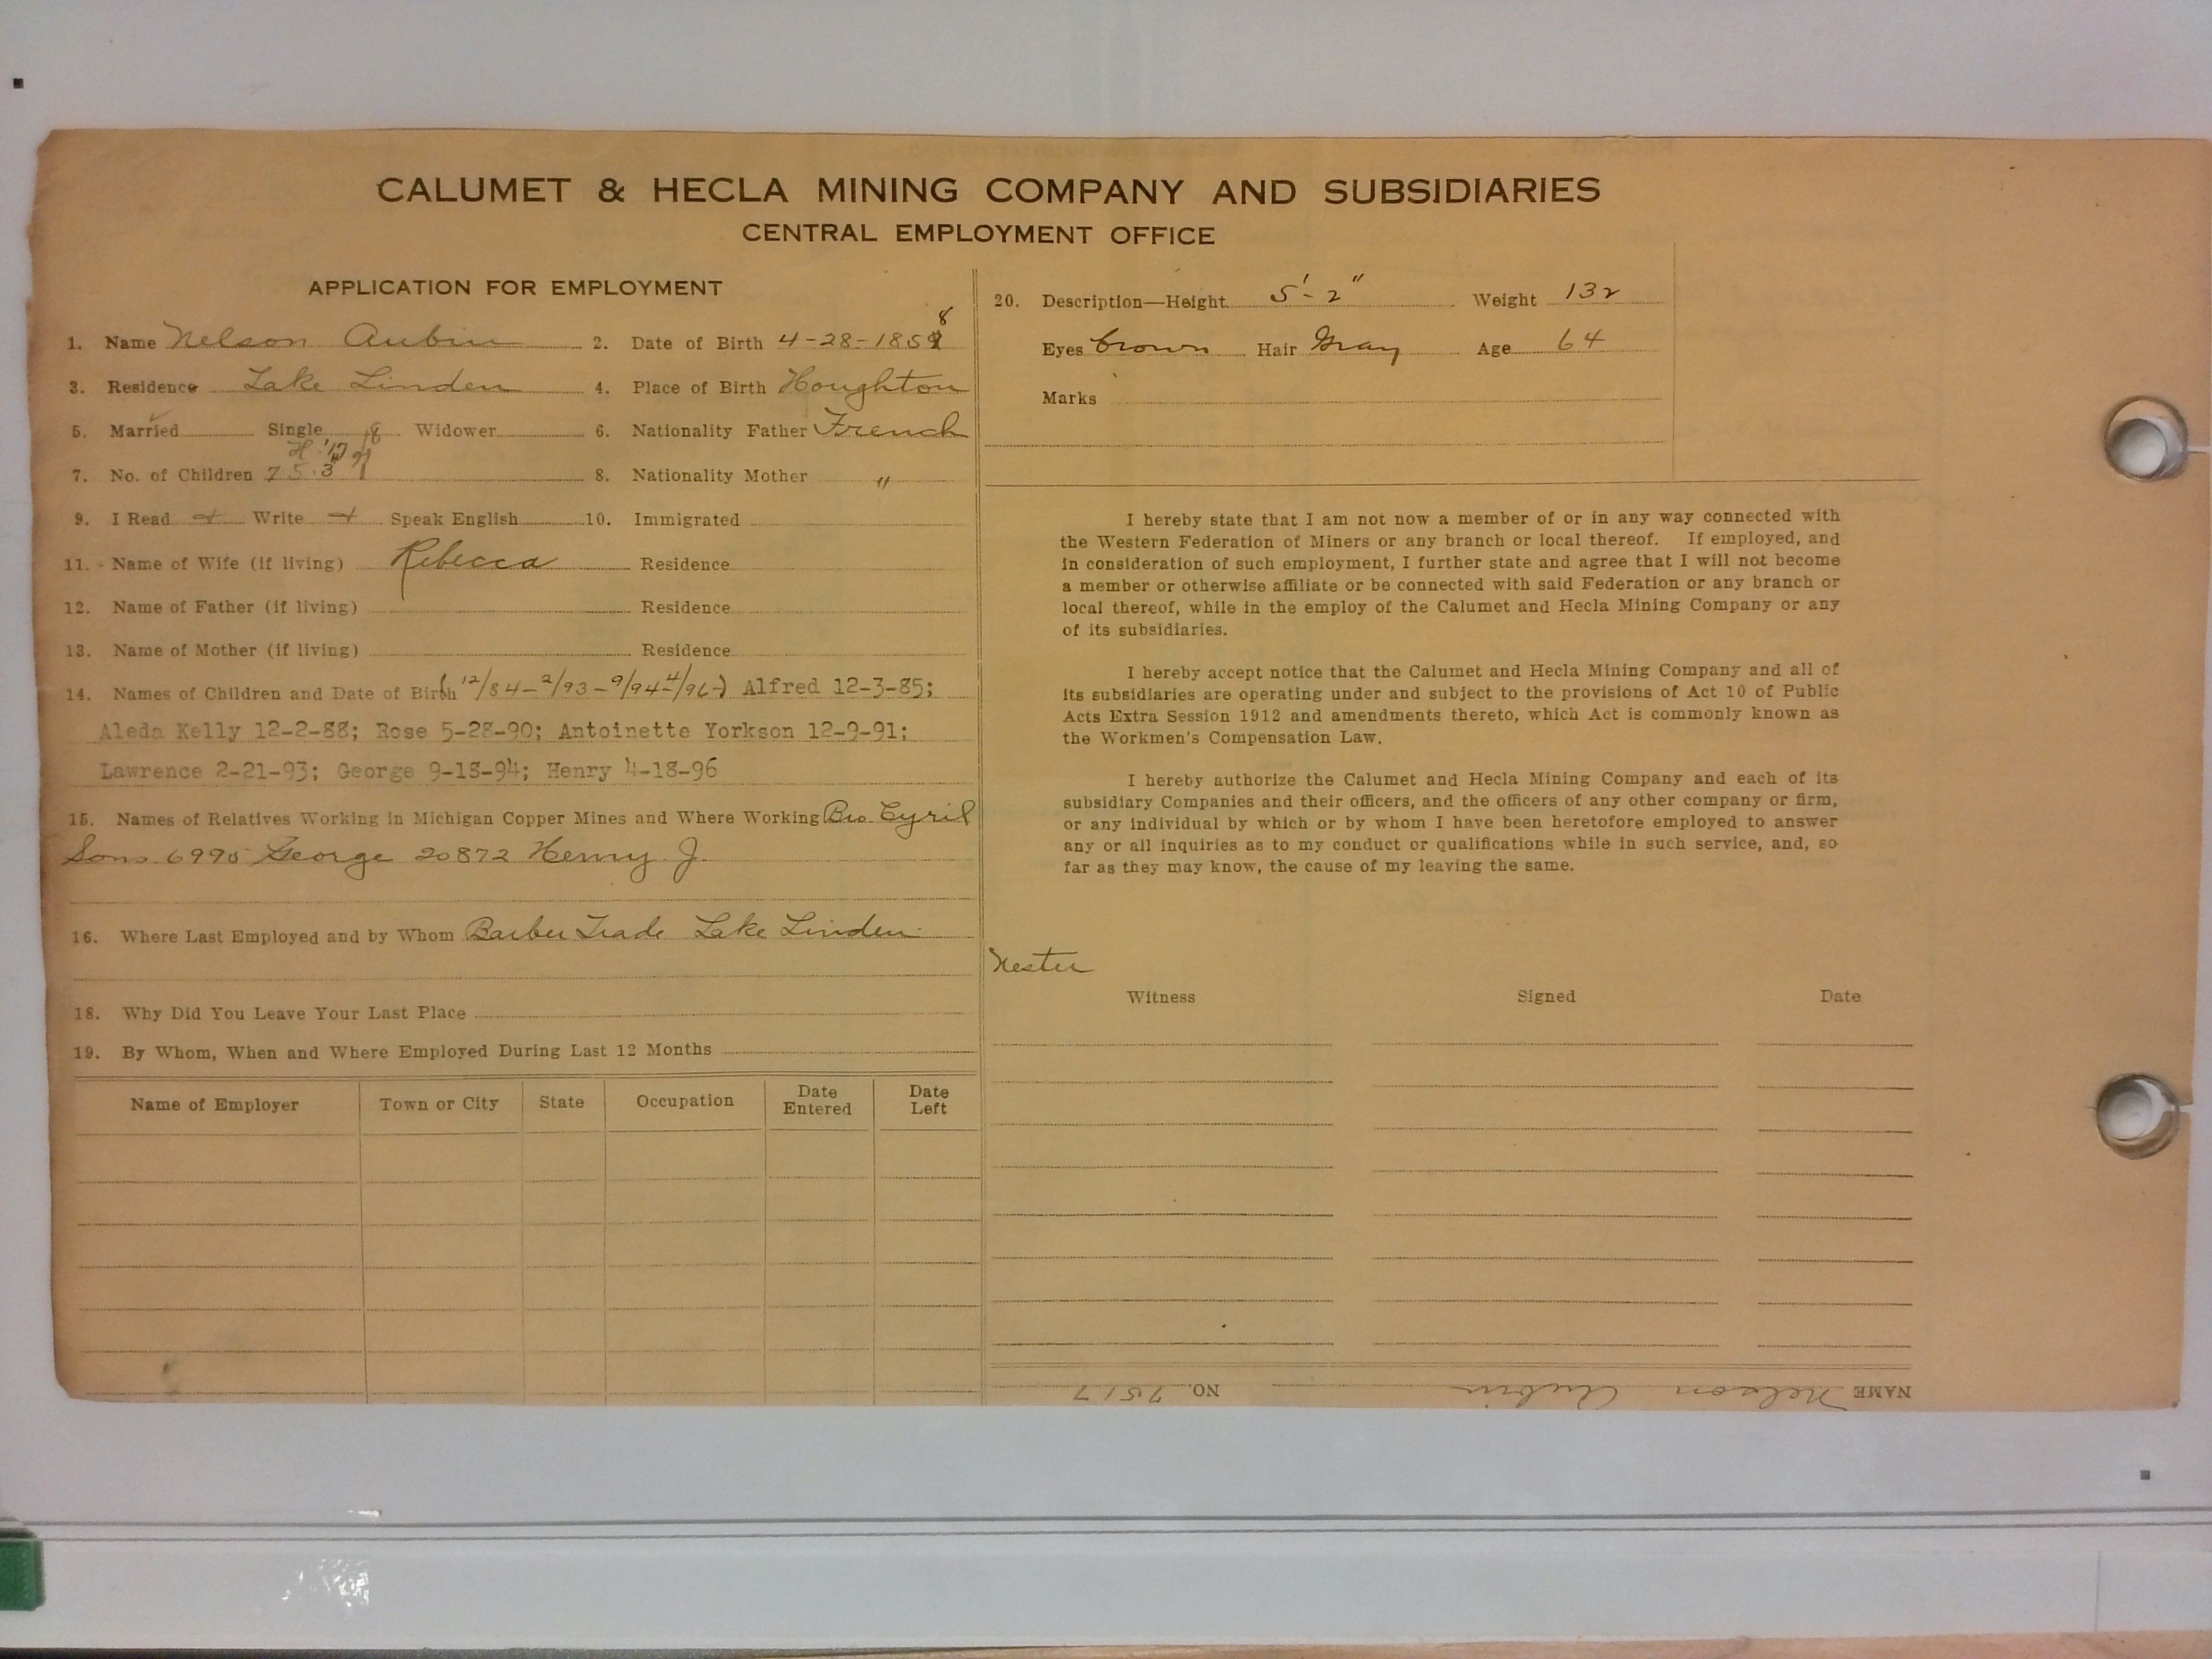 CALUMET & HECLA MINING COMPANY AND SUBSIDIARIES
CENTRAL EMPLOYMENT OFFICE
APPLICATION FOR EMPLOYMENT
1. Name Nelson Aubin 2. Date of Birth 4-28-1858
3. Residence Lake Linden 4. Place of Birth Houghton
5. Married Single Widower 6. Nationality Father French
7. No. of Children 7 8. Nationality Mother "
9. I Read + Write + Speak English 10. Immigrated
11. Name of Wife (if living) Rebecca Residence
12. Name of Father (if living) Residence
13. Name of Mother (if living) Residence
14. Names of Children and Date of Birth (12/84-2/93-9/94-4/96-) Alfred 12-3-85;
Aleda Kelly 12-2-88; Rose 5-28-90; Antoinette Yorkson 12-9-91;
Lawrence 2-21-93; George 9-18-94; Henry 4-18-96
15. Names of Relatives Working in Michigan Copper Mines and Where Working Bro. Cyril
Sons 6995 George 20872 Henry J.
16. Where Last Employed and by Whom Barber Trade Lake Linden
18. Why Did You Leave Your Last Place
19. By Whom, When and Where Employed During Last 12 Months
Name of Employer Town or City State Occupation Date Entered Date Left
20. Description—Height 5'-2" Weight 132
Eyes brown Hair Gray Age 64
Marks
I hereby state that I am not now a member of or in any way connected with
the Western Federation of Miners or any branch or local thereof. If employed, and
in consideration of such employment, I further state and agree that I will not become
a member or otherwise affiliate or be connected with said Federation or any branch or
local thereof, while in the employ of the Calumet and Hecla Mining Company or any
of its subsidiaries.
I hereby accept notice that the Calumet and Hecla Mining Company and all of
its subsidiaries are operating under and subject to the provisions of Act 10 of Public
Acts Extra Session 1912 and amendments thereto, which Act is commonly known as
the Workmen's Compensation Law.
I hereby authorize the Calumet and Hecla Mining Company and each of its
subsidiary Companies and their officers, and the officers of any other company or firm,
or any individual by which or by whom I have been heretofore employed to answer
any or all inquiries as to my conduct or qualifications while in such service, and, so
far as they may know, the cause of my leaving the same.
Nester
Witness Signed Date
NAME Nelson Aubin NO. 7517